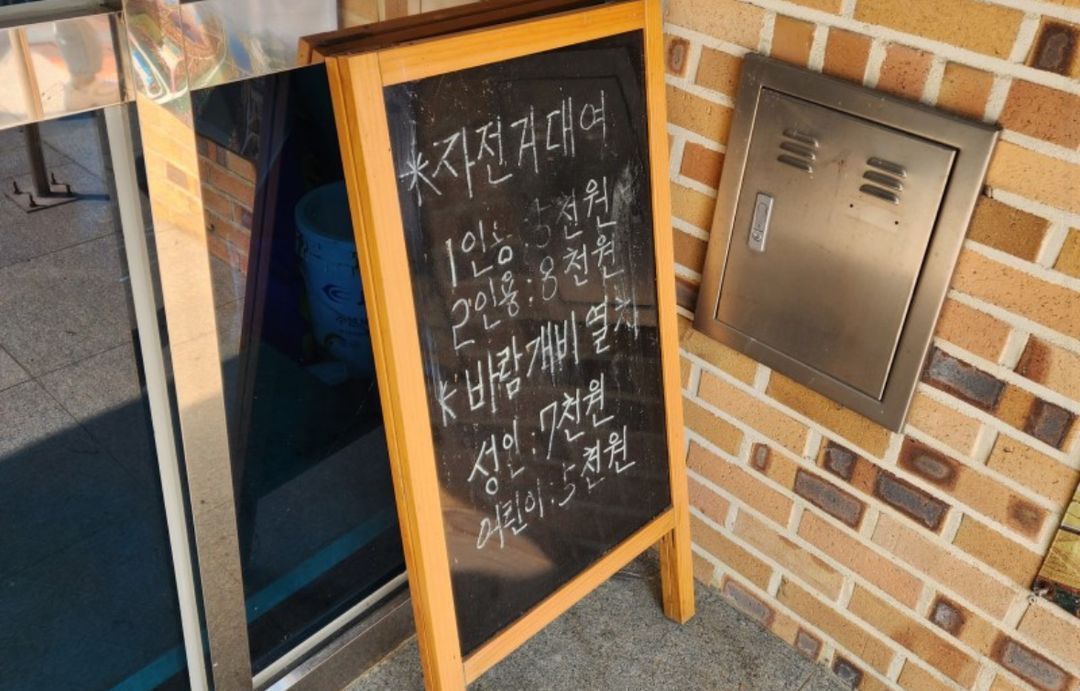 *자전거대여
1인용:5천원
2인용:8천원
*바람개비열차
성인:7천원
어린이:5천원